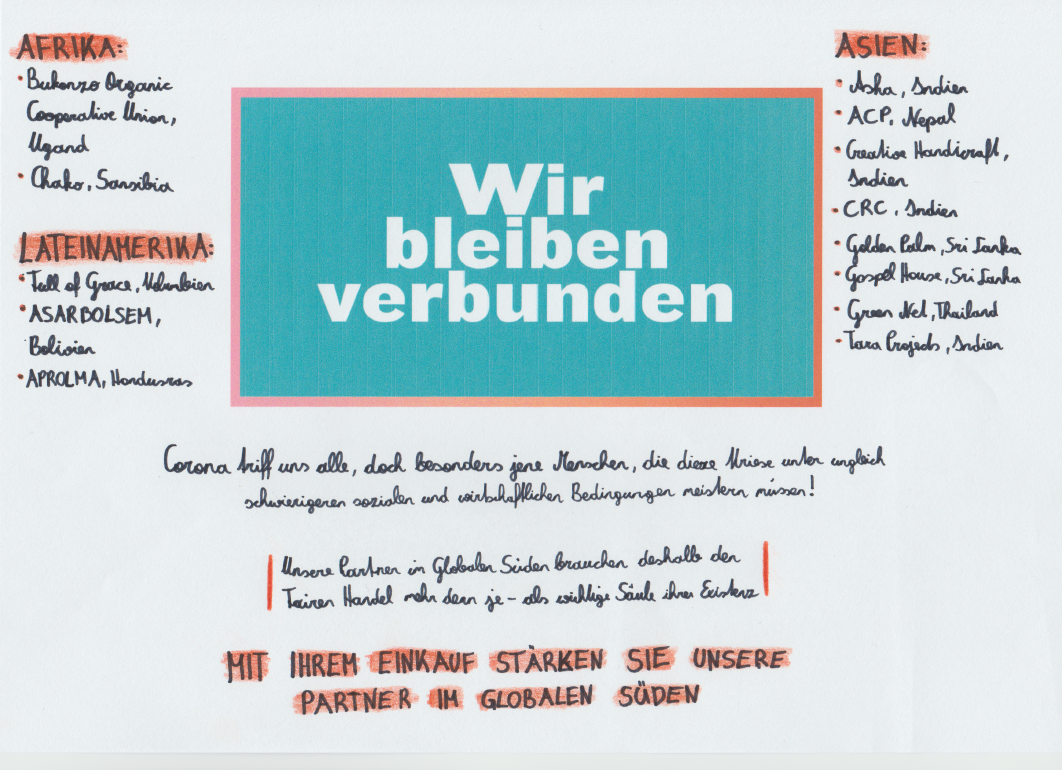 AFRIKA:
• Bukonzo Organic
Cooperative Union,
Ugand
• Chako, Sansibia
LATEINAMERIKA:
• Full of Grace, Kolumbien
• ASARBOLSEM,
Bolivien
• APROLMA, Honduras
Wir
bleiben
verbunden
ASIEN:
• Asha, Indien
• ACP, Nepal
• Creative Handicraft,
Indien
• CRC, Indien
• Golden Palm, Sri Lanka
• Gospel House, Sri Lanka
• Green Net, Thailand
• Tara Projects, Indien
Corona triff uns alle, doch besonders jene Menschen, die diese Kriese unter ungleich
schwierigeren sozialen und wirtschaftlichen Bedingungen meistern müssen!
Unsere Partner im Globalen Süden brauchen deshalb den
Fairen Handel mehr denn je – als wichtige Säule ihrer Existenz
MIT IHREM EINKAUF STÄRKEN SIE UNSERE
PARTNER IM GLOBALEN SÜDEN